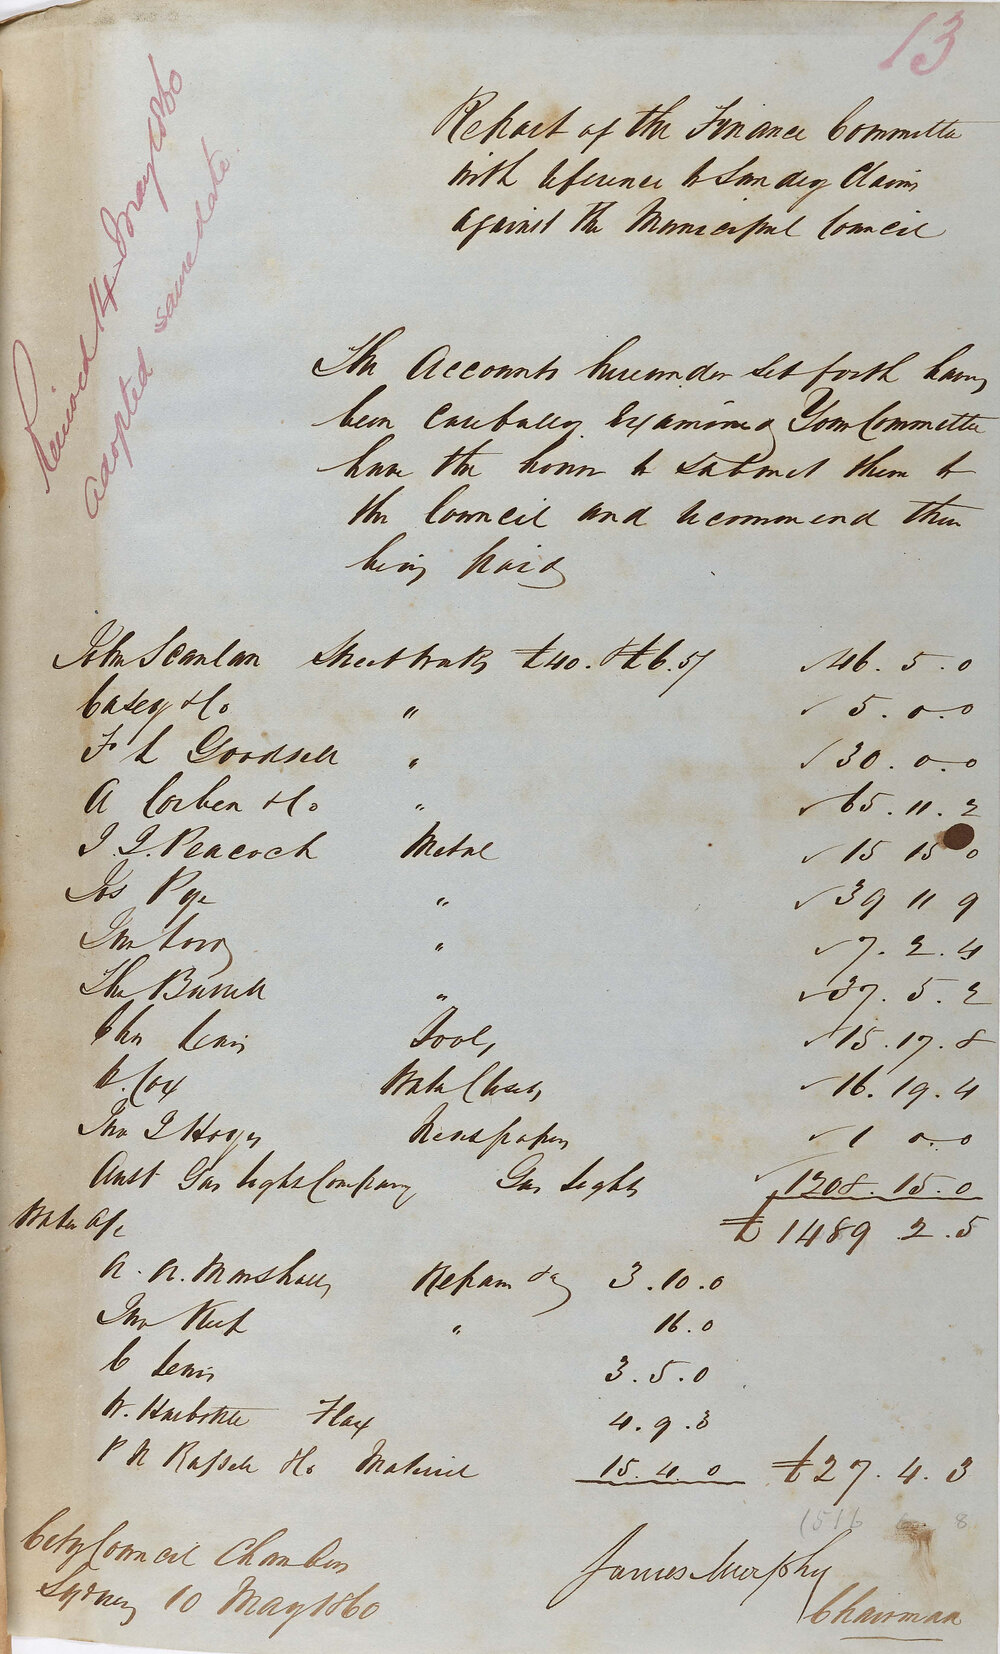 13
Received 14 May 1860
adopted same date
Report of the Finance Committee
with reference to Sundry Claims
against the Municipal Council
The Accounts hereunder set forth having
been Carefully Examined Your Committee
have the honor to submit them to
the Council and recommend their
being paid
John Scanlan Street Works £40. & £6.5/ 46.5.0
Casey & Co " 5.0.0
F L Goodsell " 30.0.0
A Corben & Co " 65.11.2
J. J. Peacock Metal 15 15 0
Jos Pye " 39 11 9
Jno " 7.2.4
Tho Burrell " 37.5.2
Chs Lewis Tools 15.17.8
W. Cox Water Closets 16.19.4
Jno Newspapers 1 0.0
Aust Gas Light Company Gas Lights 1208.15.0
£1489 2.5
Water a/c
A. A. Marshall Repairs &c 3.10.0
Jno Keep " 16.0
C Lewis 3.5.0
W. Harbottle Flax 4.9.3
P N Russell & Co Material 15.4.0 £27.4.3
1516 6 8
City Council Chambers
Sydney 10 May 1860
James Murphy
Chairman